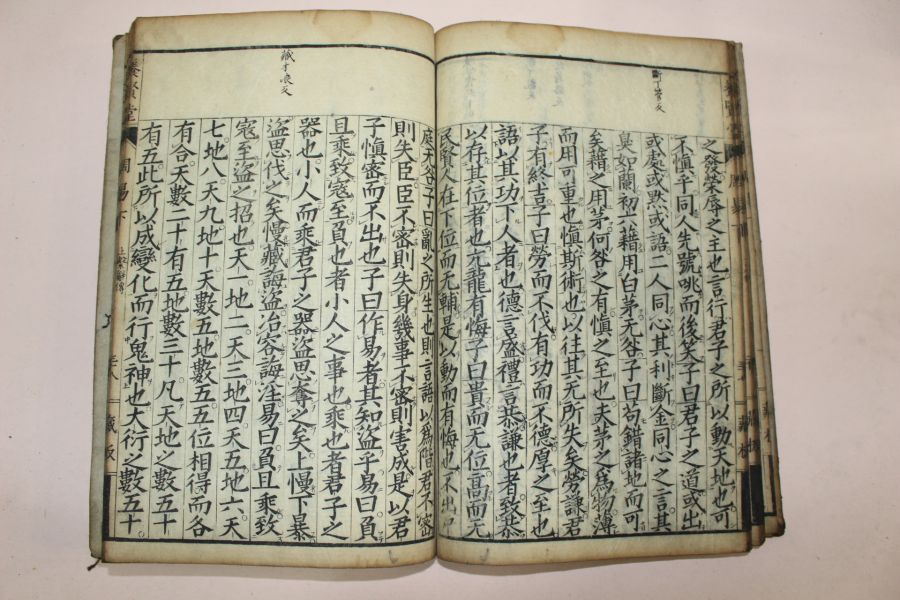 之發榮辱之主也言行君子之所以動天地也可
不慎乎同人先號咷而後笑子曰君子之道或出
或處或默或語二人同心其利斷金同心之言其
臭如蘭初六藉用白茅无咎子曰苟錯諸地而可
矣藉之用茅何咎之有慎之至也夫茅之為物薄
而用可重也慎斯術也以往其无所失矣勞謙君
子有終吉子曰勞而不伐有功而不德厚之至也
語以其功下人者也德言盛禮言恭謙也者致恭
以存其位者也亢龍有悔子曰貴而无位高而无
民賢人在下位而无輔是以動而有悔也不出戶
庭无咎子曰亂之所生也則言語以為階君不密
則失臣臣不密則失身幾事不密則害成是以君
子慎密而不出也子曰作易者其知盜乎易曰負
且乘致寇至負也者小人之事也乘也者君子之
器也小人而乘君子之器盜思奪之矣上慢下暴
盜思伐之矣慢藏誨盜冶容誨淫易曰負且乘致
寇至盜之招也天一地二天三地四天五地六天
七地八天九地十天數五地數五五位相得而各
有合天數二十有五地數三十凡天地之數五十
有五此所以成變化而行鬼神也大衍之數五十
周易下
藏板